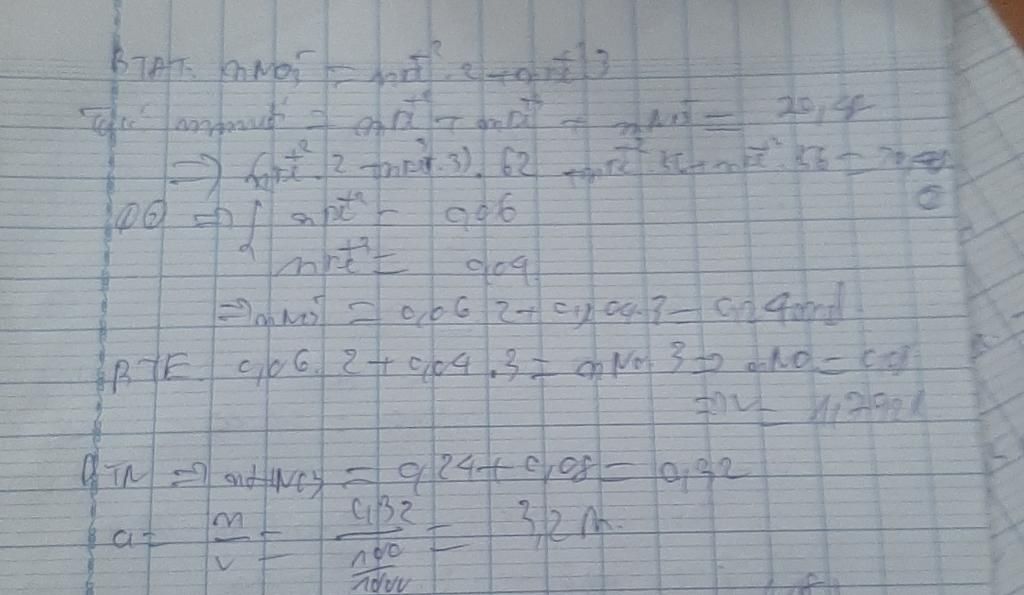 BTĐT: nNO3⁻ = nFe⁺².2 + nFe⁺³.3
= nFe⁺² + nFe⁺³ + mNO3⁻ = 20,48
=> (nFe⁺².2 + nFe⁺³.3).62 + nFe⁺².56 + nFe⁺³.56 =
①② => { nFe⁺² = 0,06
nFe⁺³ = 0,04
=> nNO3⁻ = 0,06.2 + 0,04.3 = 0,24 mol
BTE 0,06.2 + 0,04.3 = nNO.3 => nNO = 0,08
=> V = 1,792 l
BTN => nHNO3 = 0,24 + 0,08 = 0,32
a = n/v = 0,32/(100/1000) = 3,2 M.